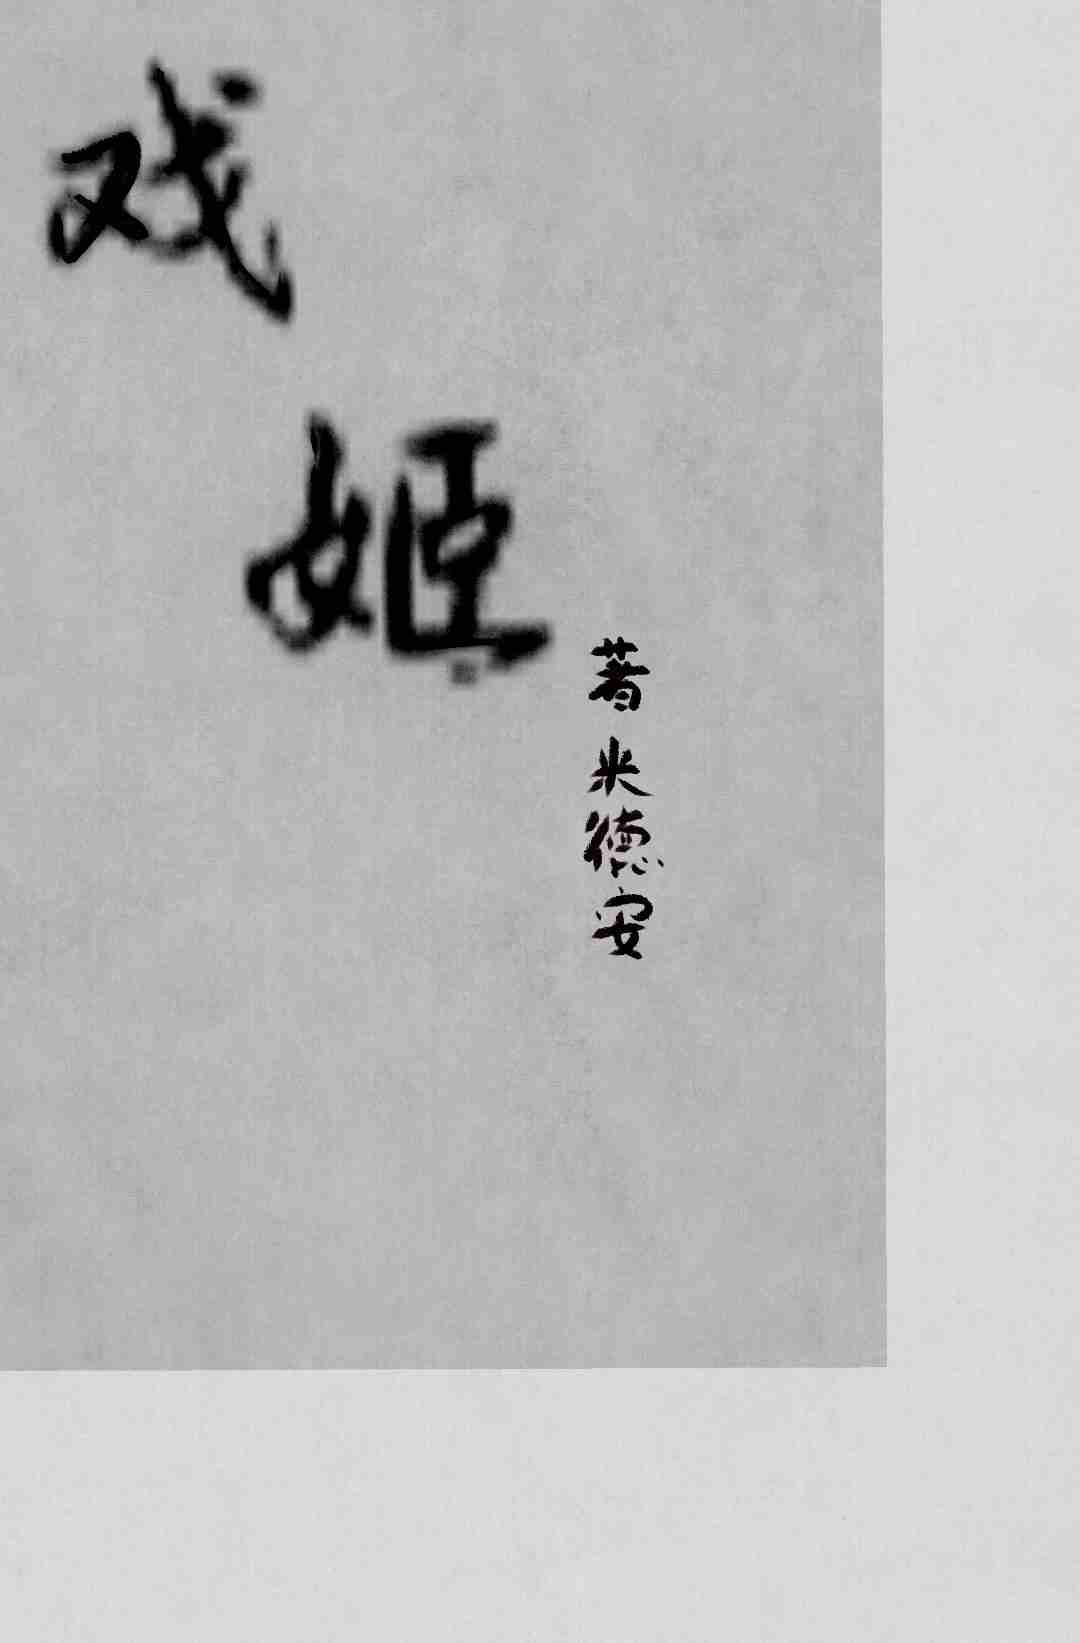 戏姬
著 米德安